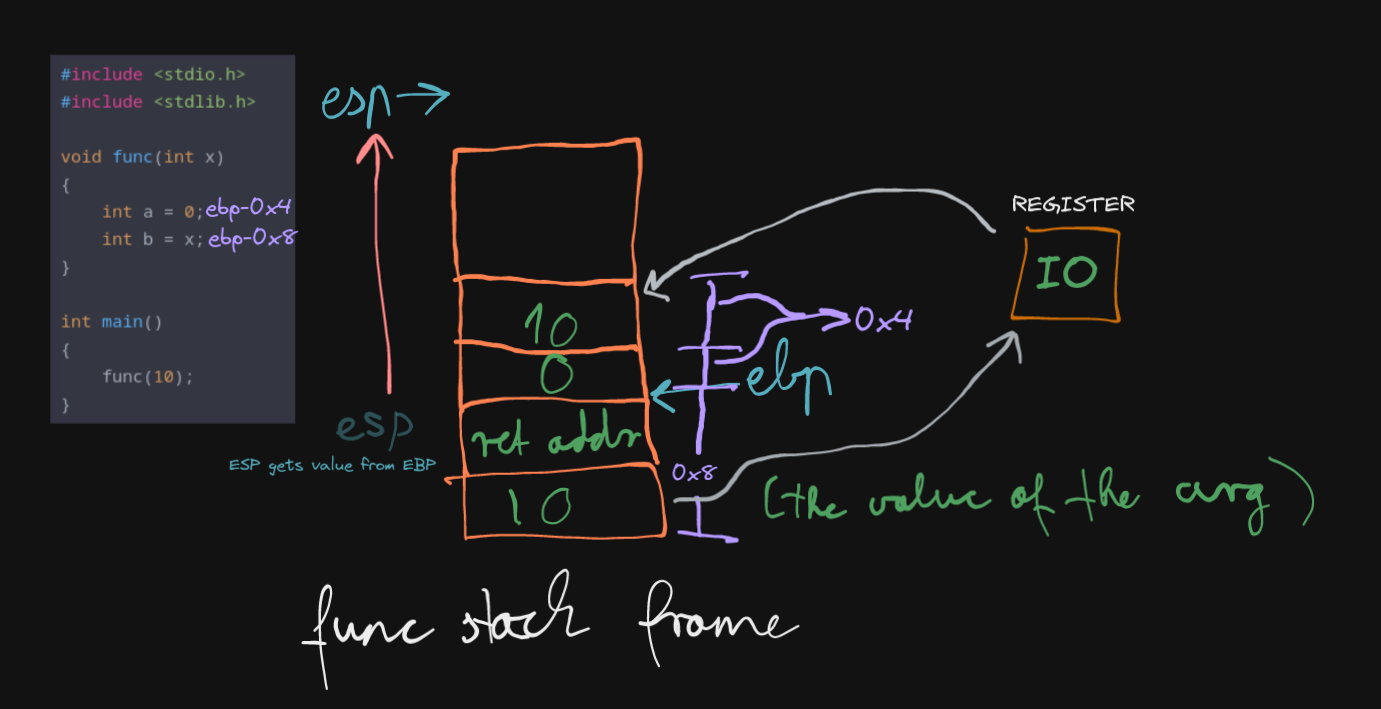 #include <stdio.h>
#include <stdlib.h>
void func(int x)
{
int a = 0; ebp-0x4
int b = x; ebp-0x8
}
int main()
{
func(10);
}
esp
esp
ESP gets value from EBP
10
0
ret addr
10
0x4
ebp
0x8
REGISTER
10
(the value of the arg)
func stack frame